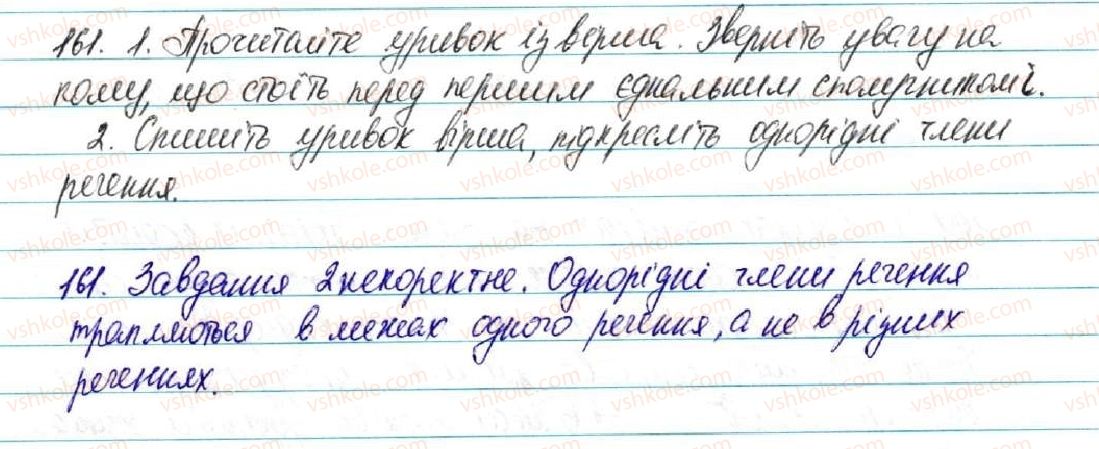 161. 1. Прочитайте уривок із вірша. Зверніть увагу на
кому, що стоїть перед першим єднальним сполучником і.
2. Спишіть уривок вірша, підкресліть однорідні члени
речення.
161. Завдання 2 некоректне. Однорідні члени речення
трапляються в межах одного речення, а не в різних
реченнях.